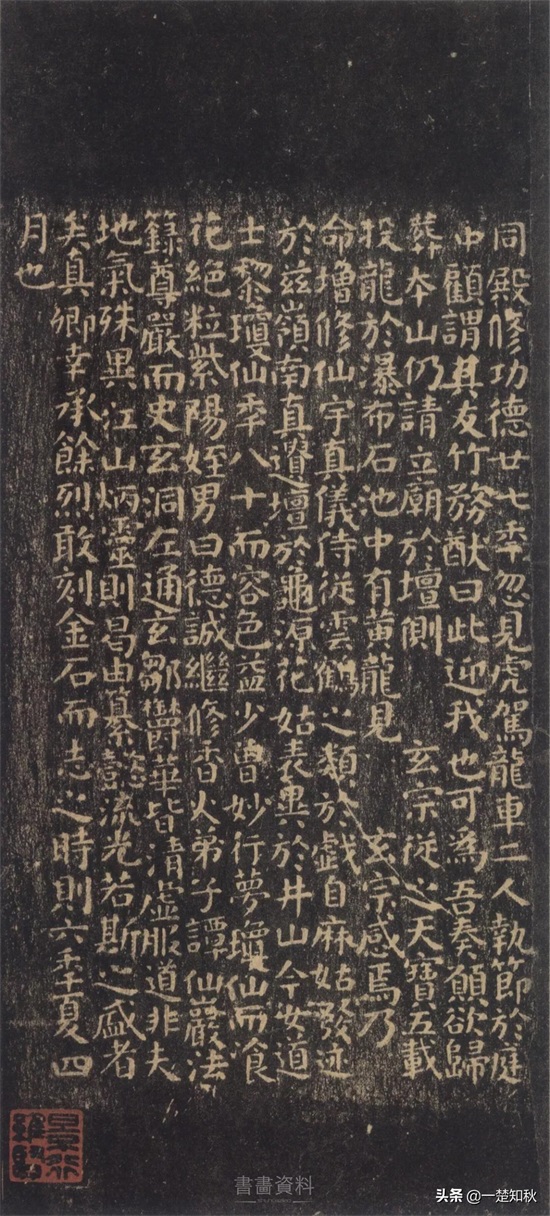 同殿修功德廿七秊忽見虎駕龍車二人執節於庭
中顧謂其友竹務猷曰此迎我也可為吾奏願欲歸
葬本山仍請立廟於壇側 玄宗從之天寶五載
投龍於瀑布石池中有黃龍見 玄宗感焉乃
命增修仙宇真儀侍從雲鶴之類於戲自麻姑發迹
於茲嶺南真遺壇於龜源花姑表異於井山今女道
士黎瓊仙秊八十而容色益少曾妙行夢瓊仙而飡
花絕粒紫陽姪男曰德誠繼修香火弟子譚仙巖法
籙尊嚴而史玄洞左通玄鄒鬱華皆清虛服道非夫
地氣殊異江山炳靈則曷由纂懿流光若斯之盛者
矣真卿幸承餘烈敢刻金石而志之時則六秊夏四
月也
景行維賢
書畫資料
头条 @一楚知秋